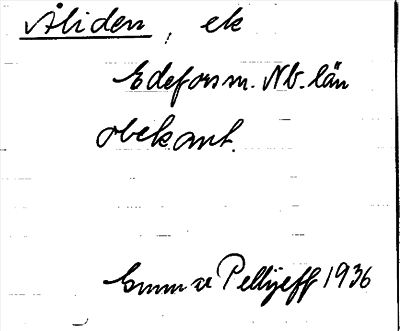 Åliden, ek
Edefors sn. Nb. län
obekant.
Gunnar Pellijeff 1936